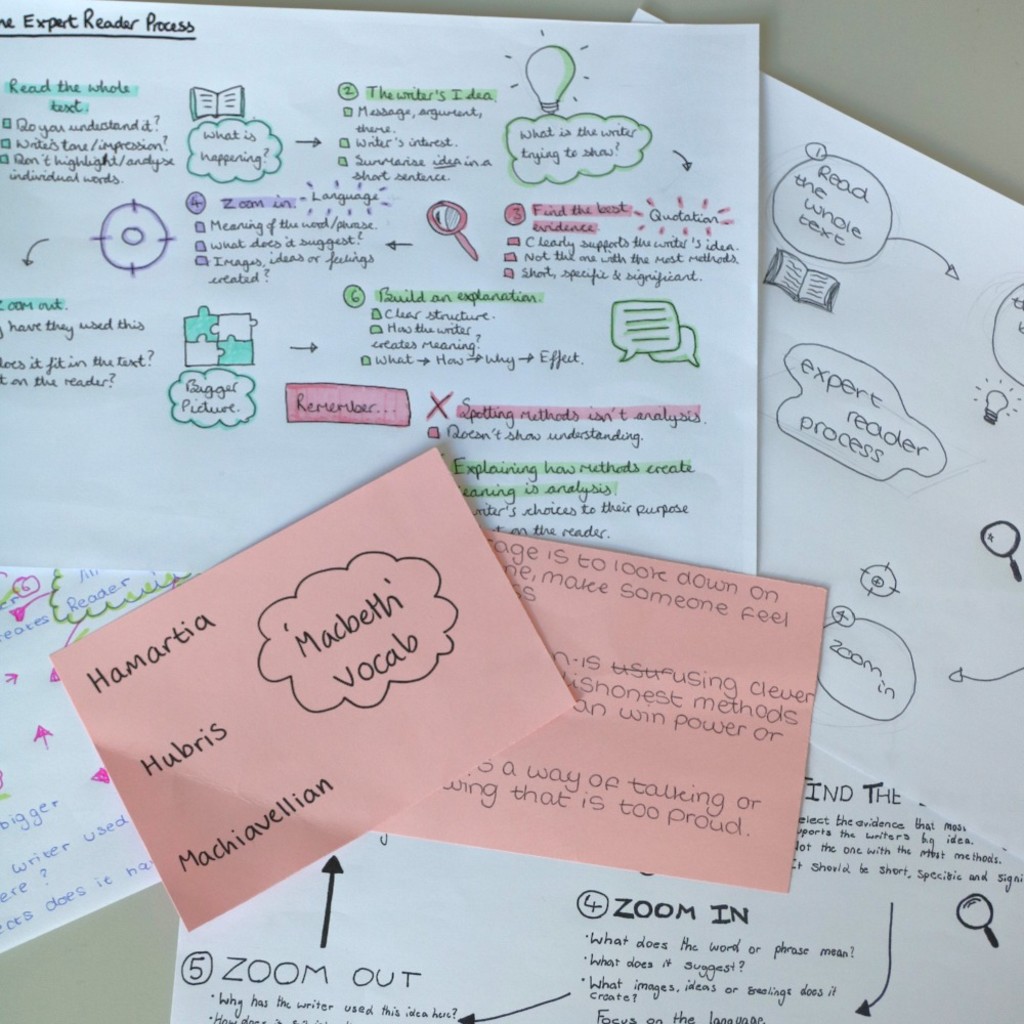 he Expert Reader Process
Read the whole
text.
Do you understand it?
Writer's tone/impression?
Don't highlight/analyse
individual words.
What is
happening?
② The writer's Idea.
Message, argument,
theme.
Writer's interest.
Summarise idea in a
short sentence.
What is the writer
trying to show?
③ Find the best
evidence.
Quotation
Clearly supports the writer's idea.
Not the one with the most methods.
Short, specific & significant.
④ Zoom in.
Language
Meaning of the word/phrase.
What does it suggest?
Images, ideas or feelings
created?
Zoom out.
have they used this
does it fit in the text?
on the reader?
Bigger
Picture.
⑥ Build an explanation.
Clear structure.
How the writer
creates meaning?
What → How → Why → Effect.
Remember...
Spotting methods isn't analysis.
Doesn't show understanding.
Explaining how methods create
meaning is analysis.
writer's choices to their purpose
on the reader.
① Read
the
whole
text
expert
reader
process
④
zoom
in
Macbeth
vocab
Hamartia
Hubris
Machiavellian
is to look down on
make someone feel
is usuf using clever
dishonest methods
win power or
a way of talking or
that is too proud.
Reader
bigger
writer used
does it
FIND THE
select the evidence that most
supports the writers big idea.
Not the one with the most methods.
It should be short, specific and signi
④ ZOOM IN
• What does the word or phrase mean?
• What does it suggest?
• What images, ideas or feelings does it
create?
Focus on the language.
⑤ ZOOM OUT
• Why has the writer used this idea here?